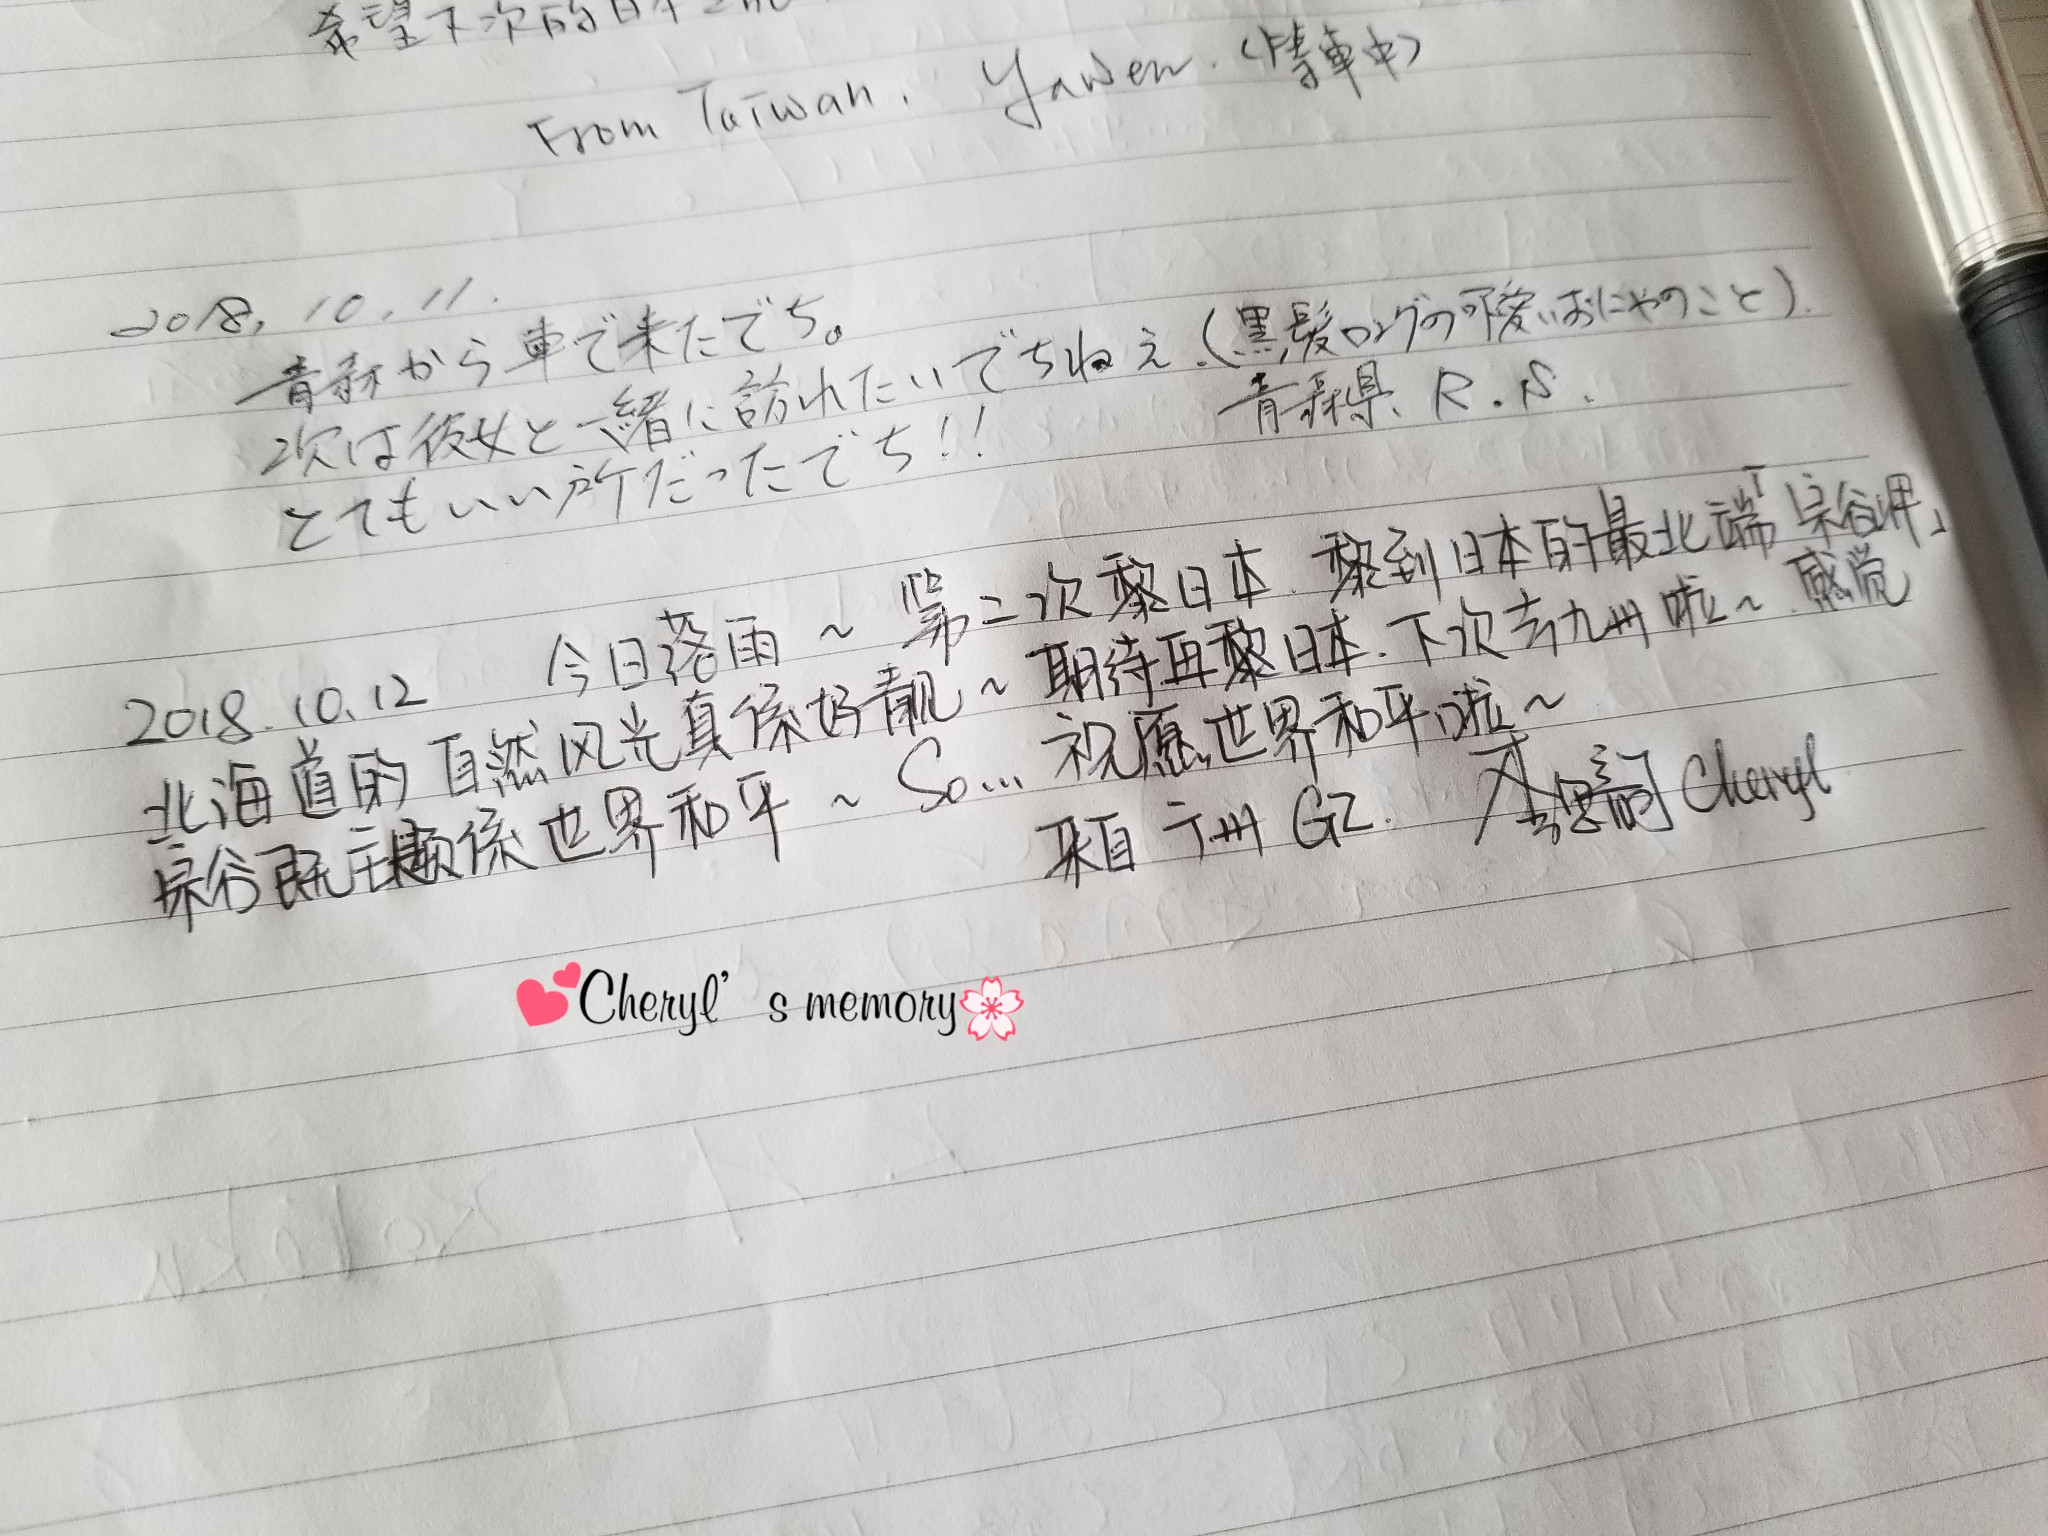 希望下次的日本之旅
From Taiwan. Yawen. (待車中)
2018, 10, 11.
青森から車で来たでち。
次は彼女と一緒に訪れたいでちねぇ.(黒髪ロングの可愛いおにゃのこと).
とてもいい所だったでち!! 青森県、R.S.
2018.10.12 今日落雨~第二次黎日本.黎到日本的最北端「宗谷岬」
北海道的自然风光真係好靓~期待再黎日本.下次去九州啦~感觉
宗谷既主題係世界和平~So...祝愿世界和平啦~
来自广州GZ. Cheryl
💕Cheryl's memory🌸